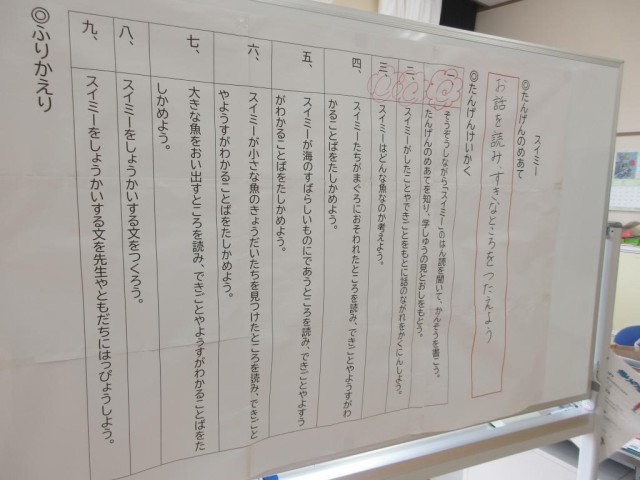 スイミー
◎たんげんのめあて
お話を読み、すきなところをつたえよう
◎たんげんけいかく
そうぞうしながら「スイミー」のはん読を聞いて、かんそうを書こう。
たんげんのめあてを知り、学しゅうの見とおしをもとう。
二、スイミーがしたことやできごとをもとに話のながれをかくにんしよう。
三、スイミーはどんな魚なのか考えよう。
四、スイミーたちがまぐろにおそわれたところを読み、できごとやようすがわ
かることばをたしかめよう。
五、スイミーが海のすばらしいものにであうところを読み、できごとやよすう
がわかることばをたしかめよう。
六、スイミーが小さな魚のきょうだいたちを見つけたところを読み、できごと
やようすがわかることばをたしかめよう。
七、大きな魚をおい出すところを読み、できごとやようすがわかることばをた
しかめよう。
八、スイミーをしょうかいする文をつくろう。
九、スイミーをしょうかいする文を先生やともだちにはっぴょうしよう。
◎ふりかえり